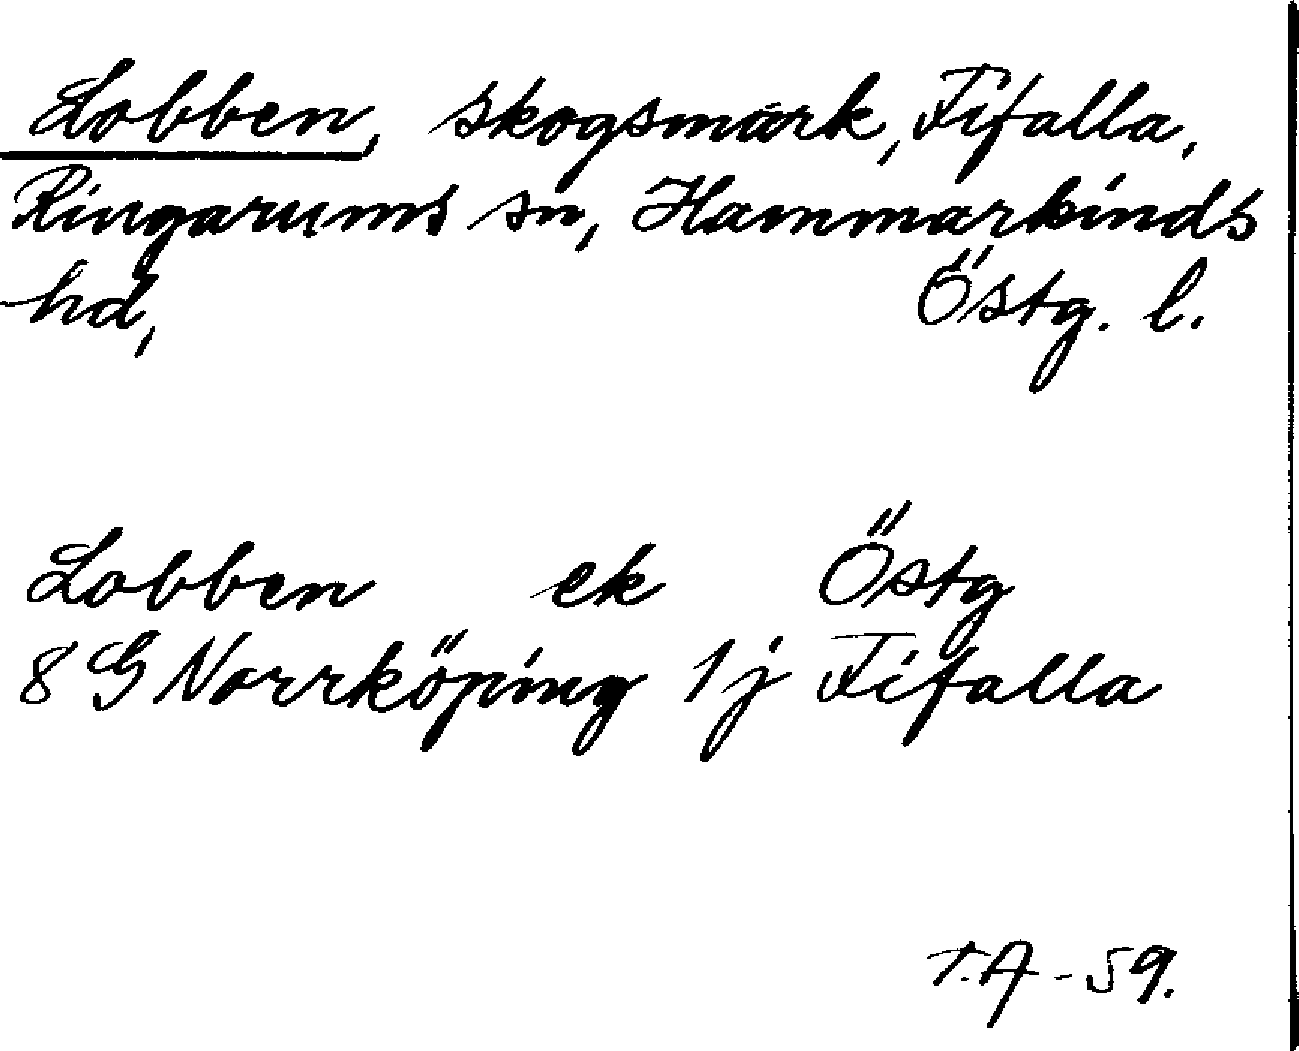 Lobben, skogsmark, Fifalla,
Ringarums sn, Hammarkinds
hd, Östg. l.
Lobben ek Östg
8 G Norrköping 1j Fifalla
T.A - 59.